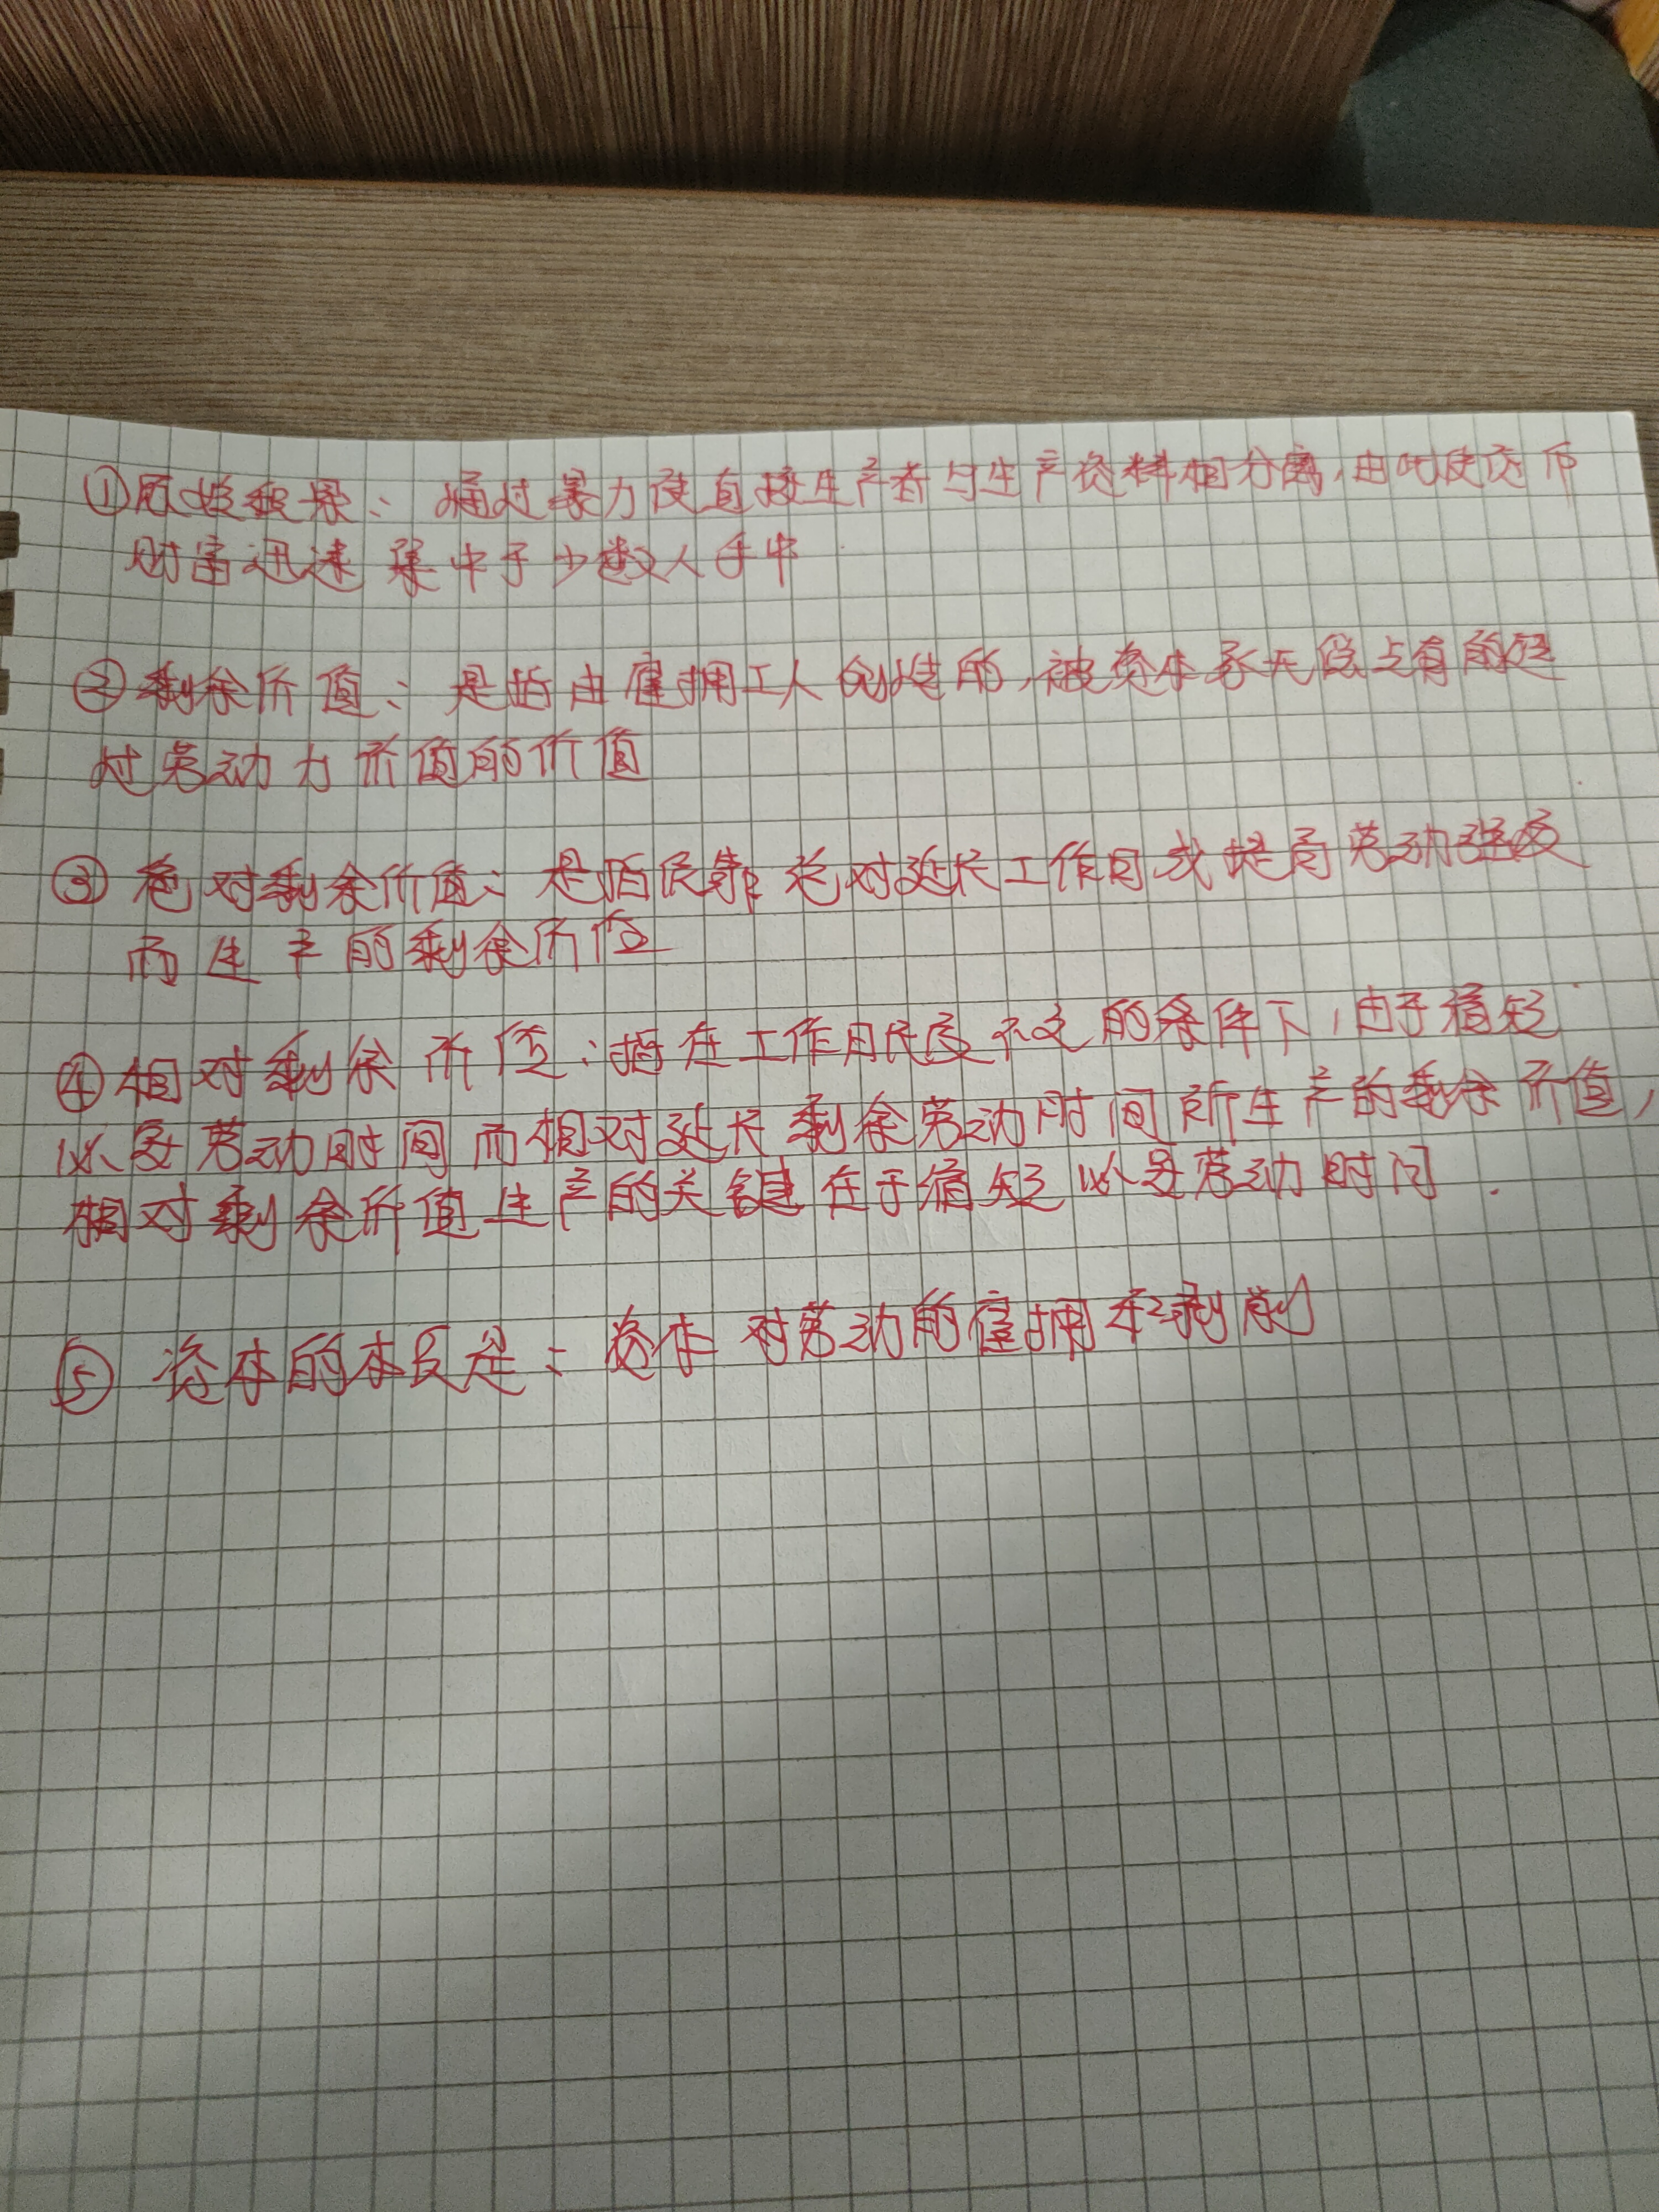 ①原始积累：通过暴力使直接生产者与生产资料相分离,由此使货币
财富迅速集中于少数人手中
②剩余价值：是指由雇拥工人创造的,被资本家无偿占有的超
过劳动力价值的价值
③绝对剩余价值：是指依靠绝对延长工作日或提高劳动强度
而生产的剩余价值
④相对剩余价值：指在工作日长度不变的条件下,由于缩短
必要劳动时间而相对延长剩余劳动时间所生产的剩余价值,
相对剩余价值生产的关键在于缩短必要劳动时间.
⑤资本的本质是：资本对劳动的雇拥和剥削